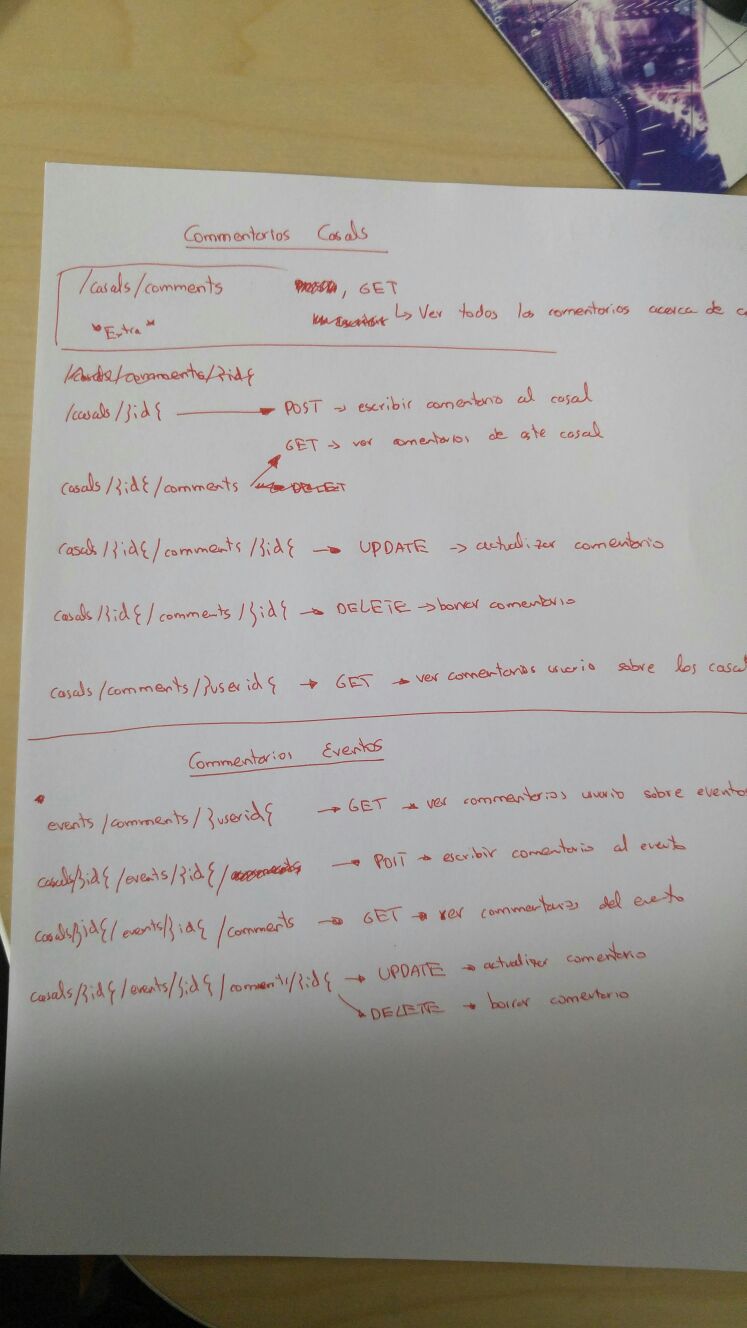 Commentarios Casals
/casals/comments , GET
"Extra" ↳ Ver todos los comentarios acerca de
/casals/comments/}id{
/casals/}id{ → POST → escribir comentario al casal
GET → ver comentarios de este casal
casals/}id{/comments DELET
casals/}id{/comments/}id{ → UPDATE → actualizar comentario
casals/}id{/comments/}id{ → DELETE → borrar comentario
casals/comments/}userid{ → GET → ver comentarios usuario sobre los casal
Commentarios Eventos
events/comments/}userid{ → GET → ver commentarios usuario sobre eventos
casals/}id{/events/}id{/comments → POST → escribir comentario al evento
casals/}id{/events/}id{/comments → GET → ver commentarios del evento
casals/}id{/events/}id{/comments/}id{ → UPDATE → actualizar comentario
→ DELETE → borrar comentario